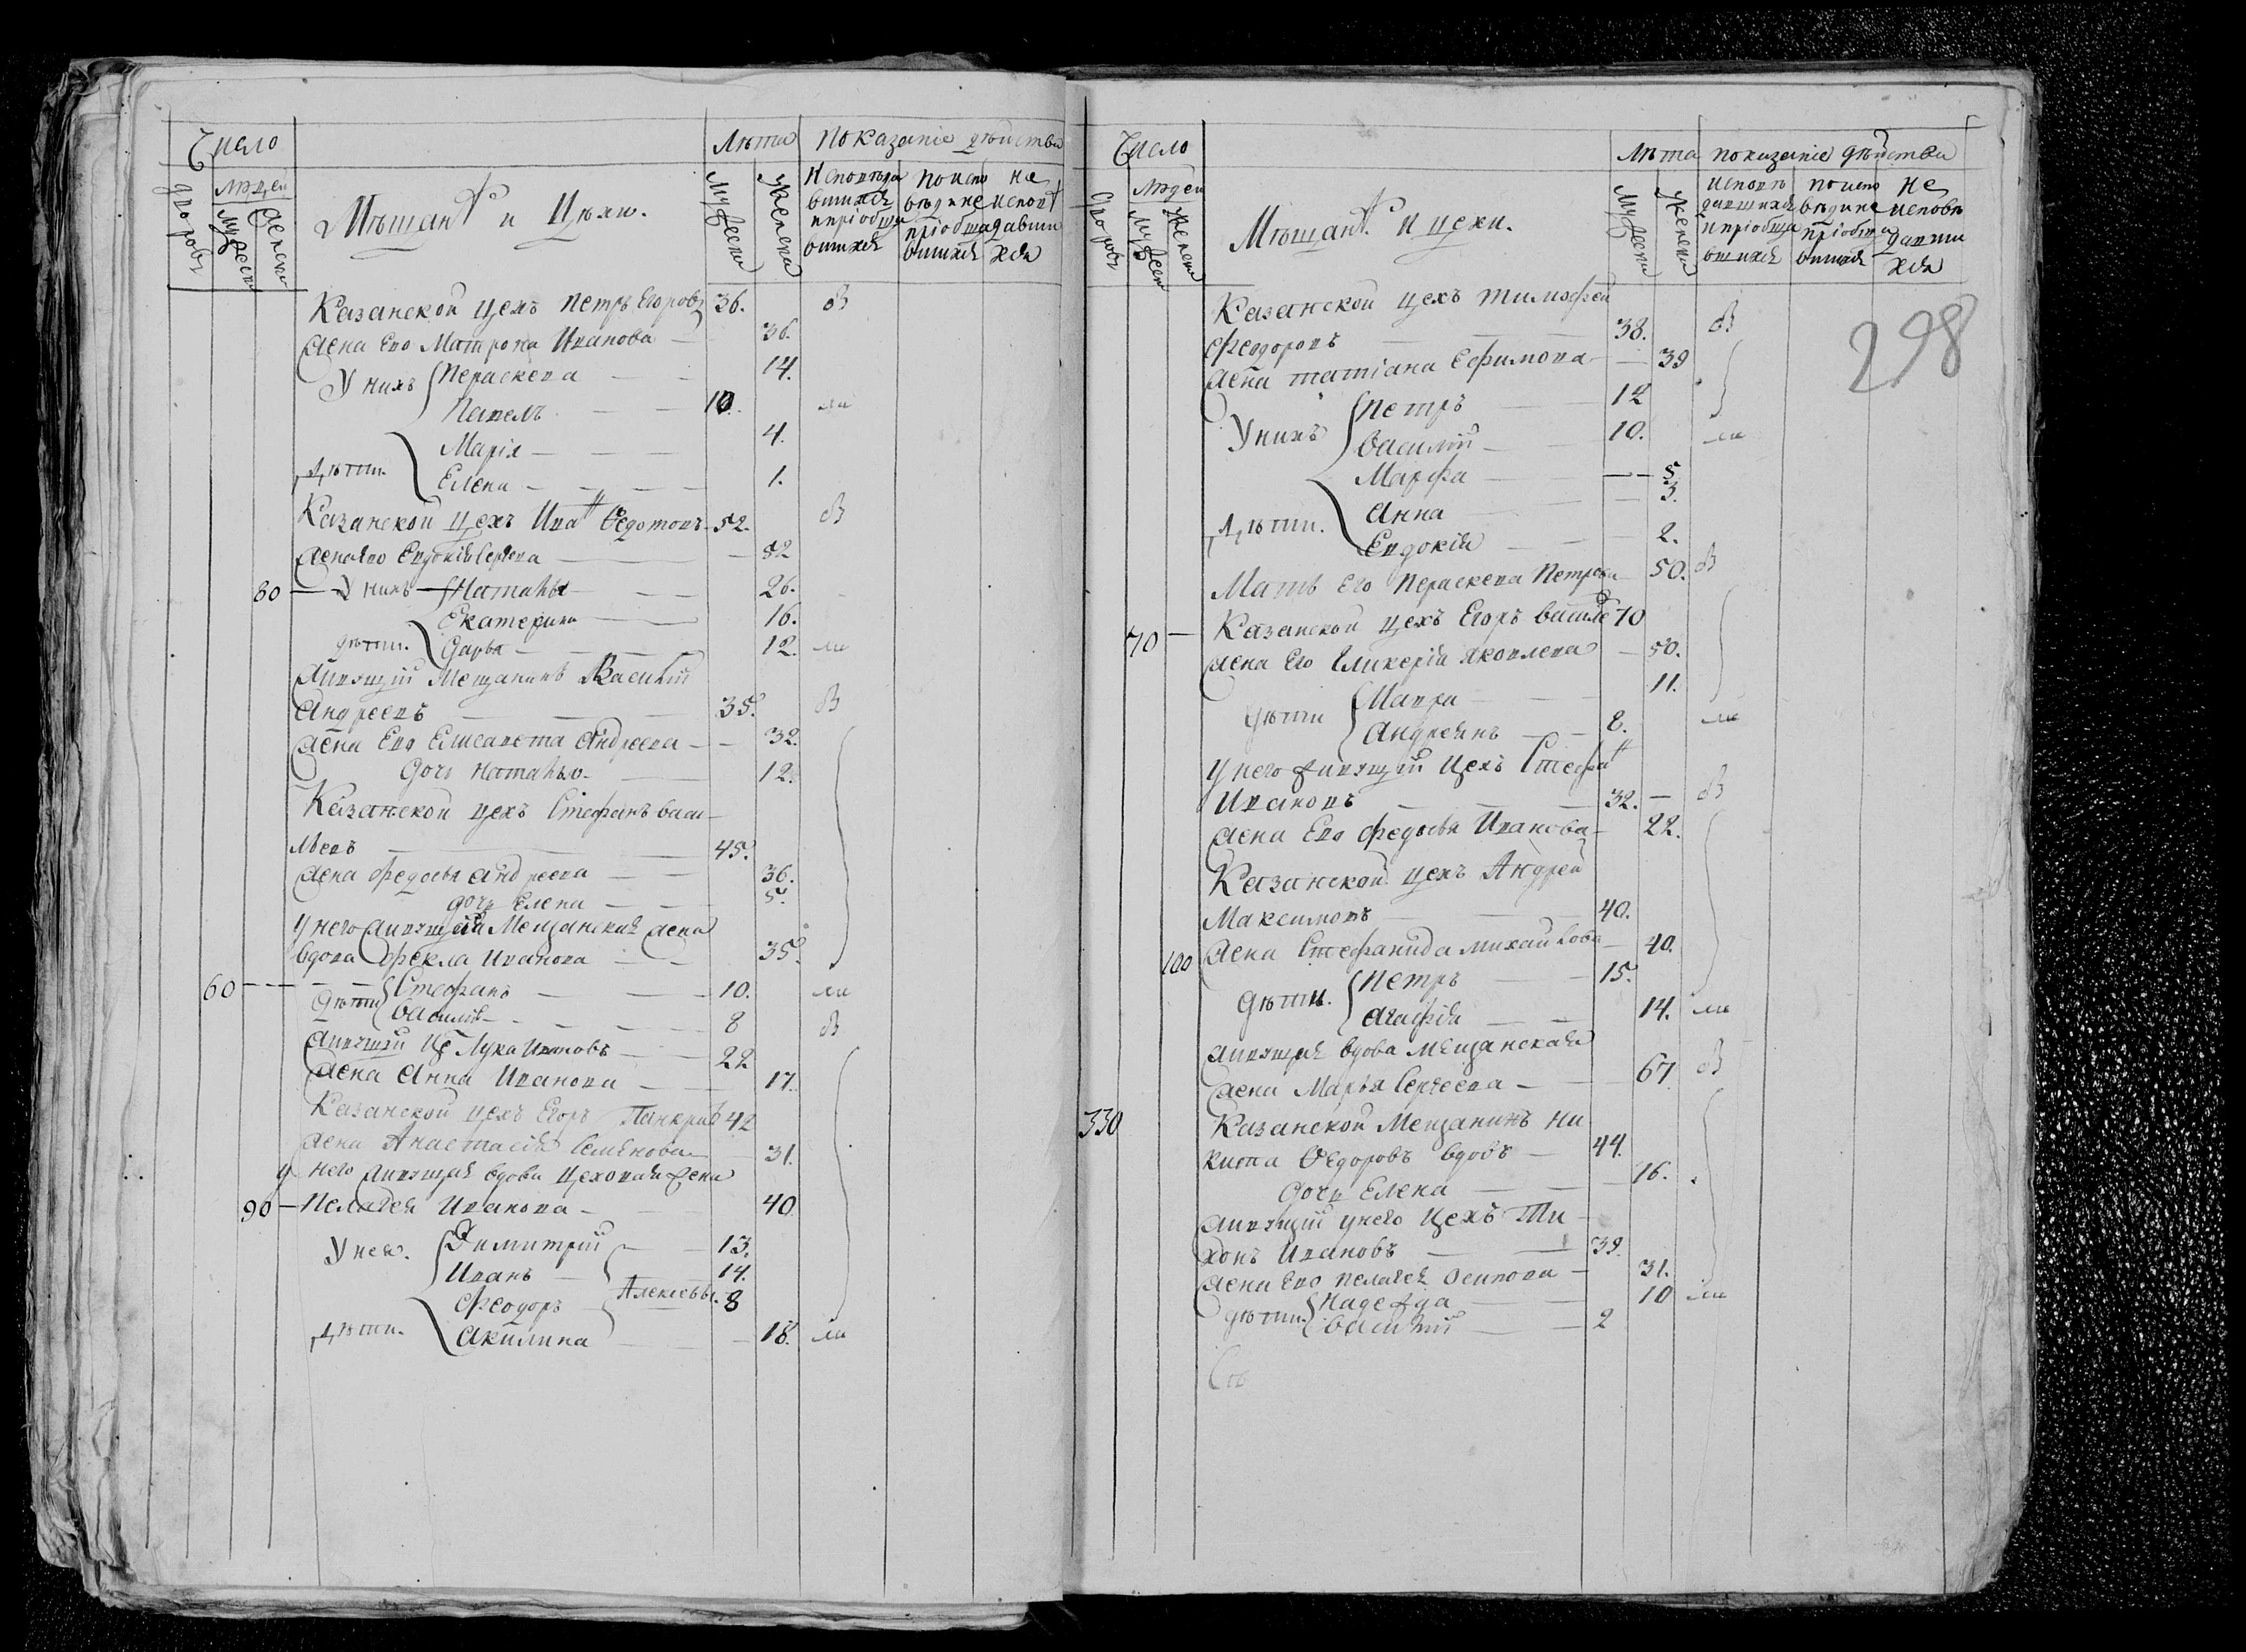 Число
Лѣта Показаніе дѣйства
людей
дворовъ
Мужеска
Женска
Мѣщанъ и Цѣхи.
Мужеска
Женска
Исповѣда
вшихся
и пріобща
вшихся
по испо
вѣди не
пріобща
вшихся
не
испов
давши
хся
Казанской цехъ Петръ Егоровъ 36. в
Жена Его Матрона Иванова 36.
У нихъ Параскева 14.
Павелъ 10. ма
Дѣти Марія 4.
Елена 1.
Казанской Цехъ Иванъ Ѳедотовъ 52. в
Жена Его Евдокія Сергева 52
80 У нихъ Наталья 26.
Екатерина 16.
дѣти. Дарья 12. ма
Живущій Мещанинъ Василій
Андреевъ 35. в
Жена Его Елисавета Андреева 32.
Дочь Наталья 12.
Казанской цехъ Стефанъ Васи
льевъ 45.
Жена Федосья Андреева 36.
дочь Елена 5.
У него живущая Мещанская жена
вдова Фекла Иванова 35.
60 дѣти Стефанъ 10. ма
Василій 8 в
Живущій Це Лука Ивановъ 22
Жена Анна Иванова 17.
Казанской цехъ Егоръ Панкрав 42
Жена Анастасія Семенова 31.
У него живущая вдова Цеховая жена
90 Пелагея Иванова 40
У нея. Димитрій 13.
Иванъ 14.
Феодоръ Алексеевы. 8
Дѣти. Акилина 18. ма
Число
Лѣта показаніе дѣйства
людей
дворовъ
Мужеска
Женска
Мѣщанъ. и цехи.
Мужеска
Женска
исповѣ
давшихся
и пріобща
вшихся
по испо
вѣди не
пріобща
вшихся
не
исповѣ
давши
хся
298
Казанской цехъ Тимофей
Феодоровъ 38. в
Жена Татіана Ефимова 39
У нихъ Петръ 12
Василій 10. ма
Марфа 5
Дѣти. Анна 3.
Евдокія 2.
Мать Его Параскева Петрова 50. в
70 Казанской цехъ Егоръ Василе 70
Жена Его Гликерія Яковлева 50.
дѣти Мавра 11.
Андреянъ 8. ма
У него живущій Цехъ Стефанъ
Ивановъ 32. в
Жена Его Федосья Иванова 22.
Казанской цехъ Андрей
Максимовъ 40.
100 Жена Стефанида Михайлова 40.
дѣти. Петръ 15.
Агафія 14. ма
Живущая вдова Мещанская
Жена Марья Сергеева 67 в
330 Казанской Мещанинъ Ни
кита Ѳедоровъ вдовъ 44.
Дочь Елена 16.
Живущій у него Цехъ Ти
хонъ Ивановъ 39.
Жена Его Пелагея Осипова 31.
дѣти. Надежда 10 ма
Василій 2